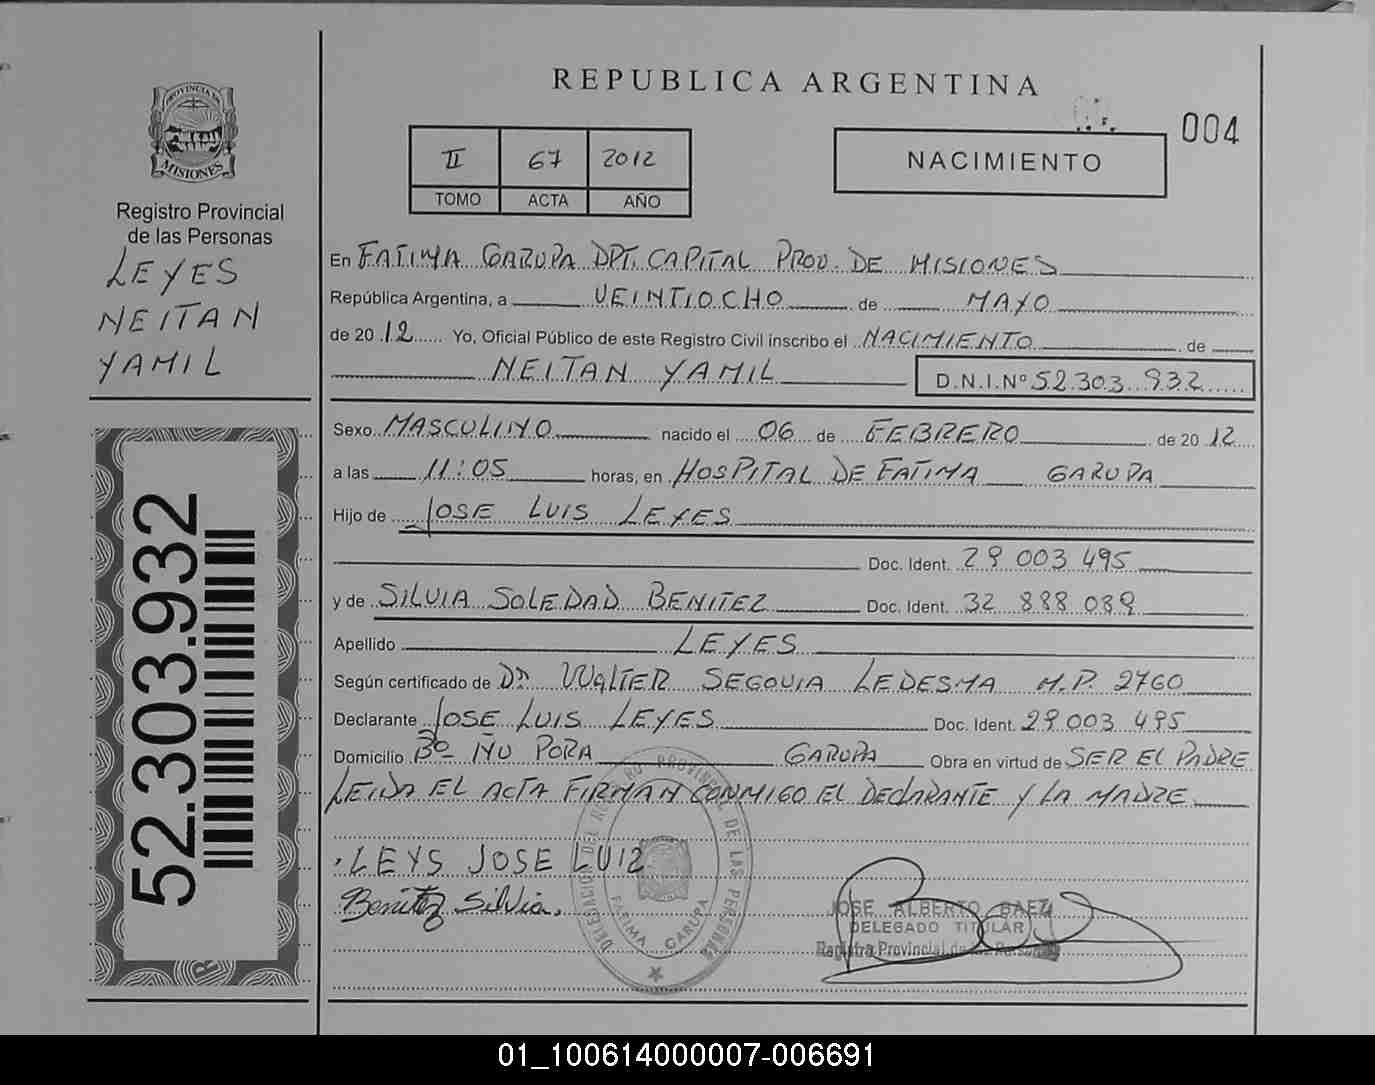 REPUBLICA ARGENTINA
004
PROVINCIA DE MISIONES
Registro Provincial
de las Personas
LEYES
NEITAN
YAMIL
52.303.932
II 67 2012
TOMO ACTA AÑO
NACIMIENTO
En FATIMA GARUPA DPT. CAPITAL PROV. DE MISIONES
República Argentina, a VEINTIOCHO de MAYO
de 2012 Yo, Oficial Público de este Registro Civil inscribo el NACIMIENTO de
NEITAN YAMIL D.N.I.Nº 52.303.932
Sexo MASCULINO nacido el 06 de FEBRERO de 2012
a las 11:05 horas, en HOSPITAL DE FATIMA GARUPA
Hijo de JOSE LUIS LEYES
Doc. Ident. 29 003 495
y de SILVIA SOLEDAD BENITEZ Doc. Ident. 32 888 089
Apellido LEYES
Según certificado de Dr. WALTER SEGOVIA LEDESMA M.P. 2760
Declarante JOSE LUIS LEYES Doc. Ident. 29 003 495
Domicilio Bº ÑU PORA GARUPA Obra en virtud de SER EL PADRE
LEIDA EL ACTA FIRMAN CONMIGO EL DECLARANTE Y LA MADRE
LEYS JOSE LUIZ
Benitez Silvia.
DELEGACION DEL REGISTRO PROVINCIAL DE LAS PERSONAS
FATIMA GARUPA
JOSE ALBERTO BAEZ
DELEGADO TITULAR
Registro Provincial de las Personas
01_100614000007-006691